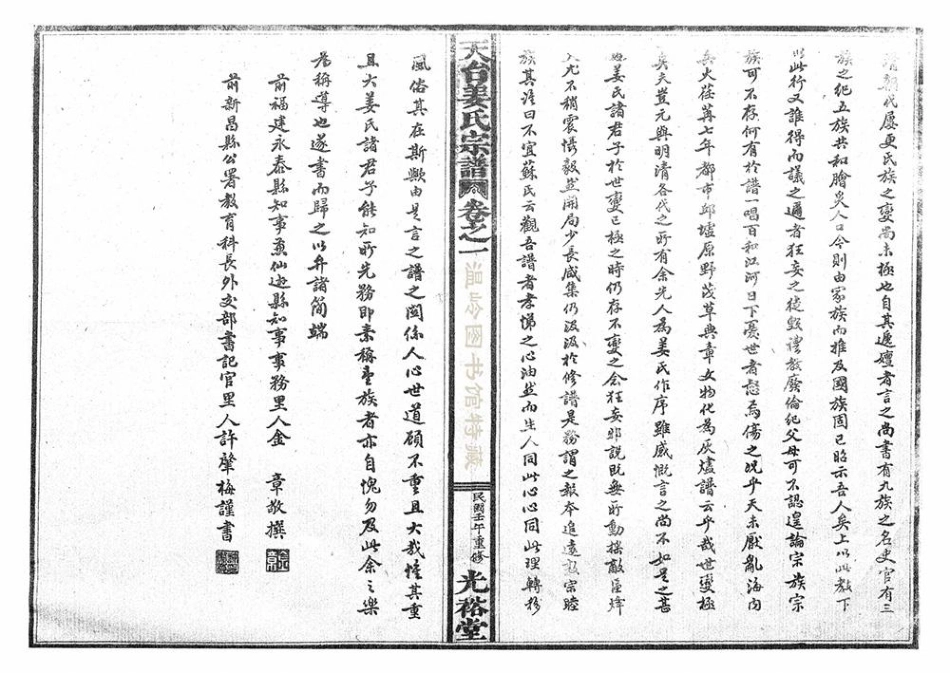 清朝代屢更氏族之變尚未極也自其遞嬗者言之尚書有九族之名史官有三
族之紀五族共和膾炙人口今則由家族而推及國族固已昭示吾人矣上以此教下
以此行又誰得而議之邇者狂妄之徒毀禮教廢倫紀父母可不認遑論宗族宗
族可不存何有於譜一唱百和江河日下憂世者愁焉傷之况乎天未厭亂海內
兵火荏苒七年都市邱墟原野茂草典章文物化為灰燼譜云乎哉世變極
矣夫豈元與明清各代之所有余先人為姜氏作序雖感慨言之尚不如是之甚
也姜氏諸君子於世變已極之時仍存不變之念狂妄邪說既無所動搖敵區烽
火尤不稍震懾毅然開局少長咸集仍汲汲於修譜是務謂之報本追遠敬宗睦
族其誰曰不宜蘇氏云觀吾譜者孝悌之心油然而生人同此心心同此理轉移
天台姜氏宗譜
卷之一
温岭图书馆特藏
民國壬午重修
光裕堂
風俗其在斯歟由是言之譜之關係人心世道顧不重且大哉惟其重
且大姜氏諸君子能知所先務即素稱望族者亦自愧勿及此余之樂
為稱導也遂書而歸之以弁諸簡端
前福建永泰縣知事兼仙遊縣知事事務里人金 章敬撰
前新昌縣公署教育科長外交部書記官里人許肇梅謹書